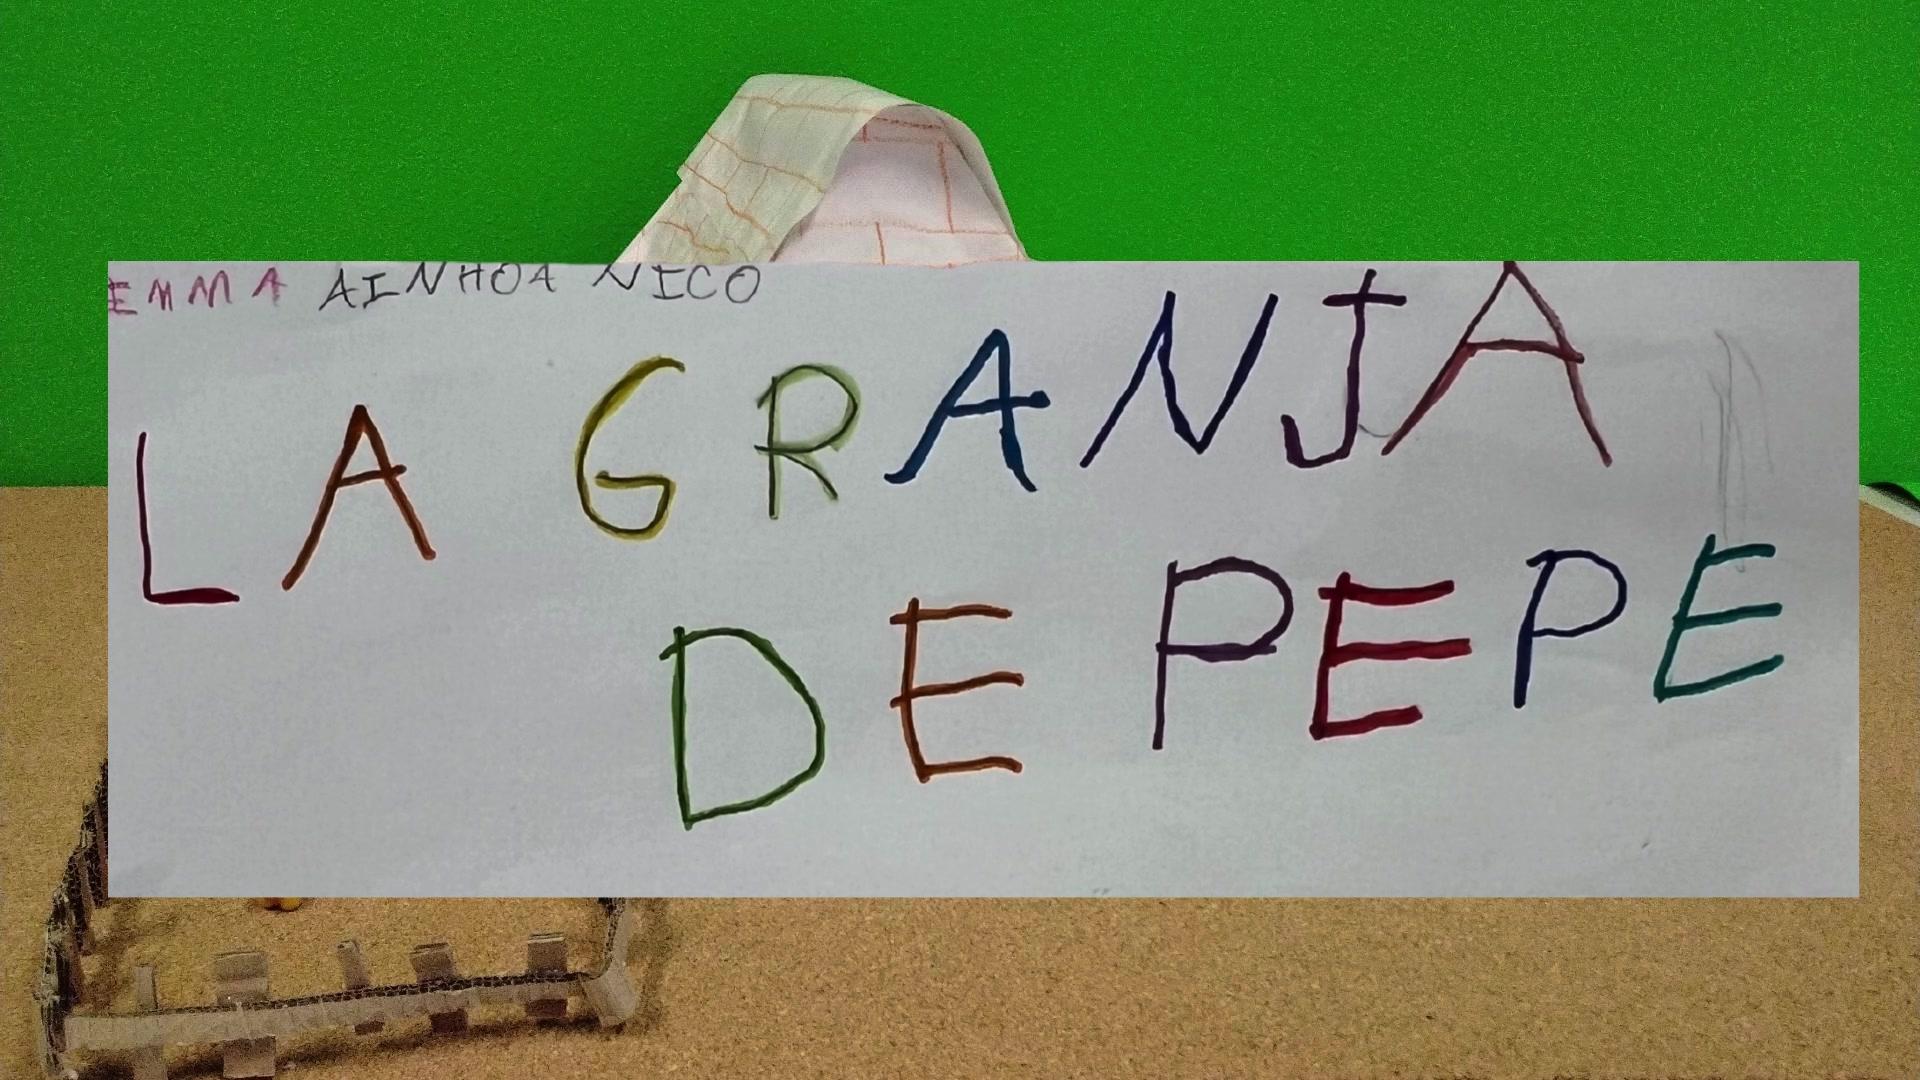 EMMA AINHOA NICO
LA GRANJA
DE PEPE